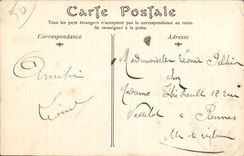 50
Carte Postale
Tous les pays étrangers n'acceptent pas la correspondance au recto.
Se renseigner à la poste.
Correspondance
Adresse
Amitié
Mademoiselle
chez
Madame Thébault 12 rue
à Rennes
Ille et vilaine